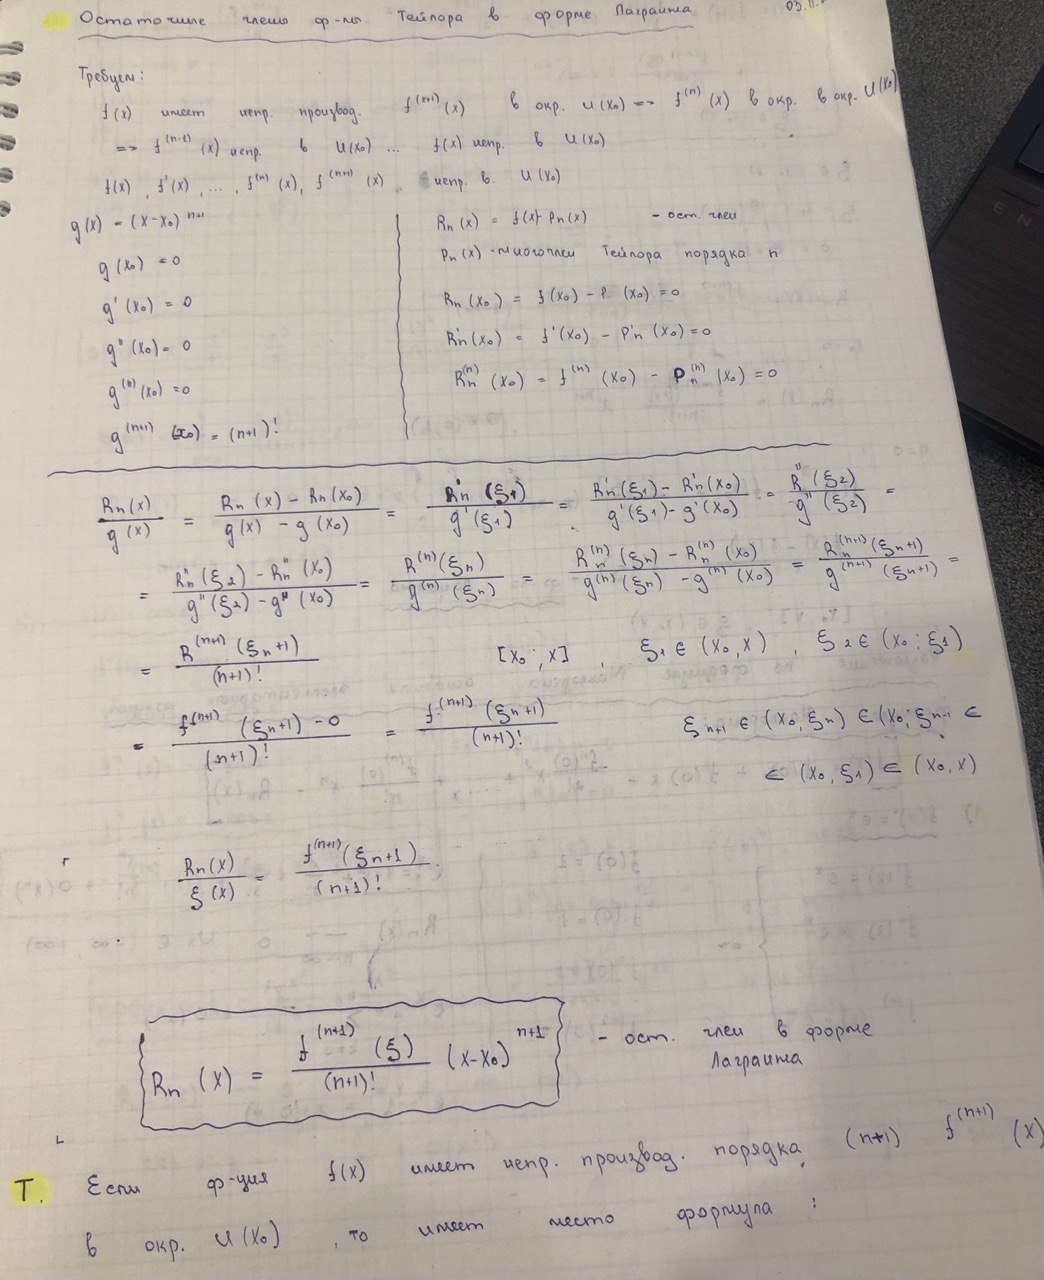 Остаточные члены ф-лы Тейлора в форме Лагранжа
03.11.
Требуем:
f(x) имеет непр. производ. f^(n+1) (x) в окр. U(x₀) => f^(n) (x) в окр. в окр. U(x₀)
=> f^(n-1) (x) непр. в U(x₀) ... f(x) непр. в U(x₀)
f(x), f'(x), ..., f^(n) (x), f^(n+1) (x) непр. в. U(x₀)
g(x) - (x-x₀)^n+1
g(x₀) = 0
g'(x₀) = 0
g''(x₀) = 0
g^(n) (x₀) = 0
g^(n+1) (x₀) = (n+1)!
Rn(x) = f(x) - Pn(x) - ост. член
Pn(x) - многочлен Тейлора порядка n
Rn(x₀) = f(x₀) - P(x₀) = 0
R'n(x₀) = f'(x₀) - P'n(x₀) = 0
Rn^(n) (x₀) = f^(n) (x₀) - Pn^(n) (x₀) = 0
Rn(x)/g(x) = (Rn(x) - Rn(x₀))/(g(x) - g(x₀)) = R'n(ξ1)/g'(ξ1) = (R'n(ξ1) - R'n(x₀))/(g'(ξ1) - g'(x₀)) = R''(ξ2)/g''(ξ2) =
= (R''n(ξ2) - R''n(x₀))/(g''(ξ2) - g''(x₀)) = R^(n)(ξn)/g^(n)(ξn) = (Rn^(n)(ξn) - Rn^(n)(x₀))/(g^(n)(ξn) - g^(n)(x₀)) = Rn^(n+1)(ξn+1)/g^(n+1)(ξn+1) =
= R^(n+1)(ξn+1)/(n+1)! [x₀; x], ξ1 ∈ (x₀, x), ξ2 ∈ (x₀; ξ1)
= (f^(n+1)(ξn+1) - 0)/(n+1)! = f^(n+1)(ξn+1)/(n+1)! ξn+1 ∈ (x₀, ξn) ∈ (x₀; ξn-1 ∈
∈ (x₀, ξ1) ∈ (x₀, x)
Rn(x)/ξ(x) = f^(n+1)(ξn+1)/(n+1)!
Rn(x) = f^(n+1)(ξ)/(n+1)! (x-x₀)^n+1 - ост. член в форме
Лагранжа
Т. Если ф-ция f(x) имеет непр. производ. порядка (n+1) f^(n+1) (x)
в окр. U(x₀), то имеет место формула: